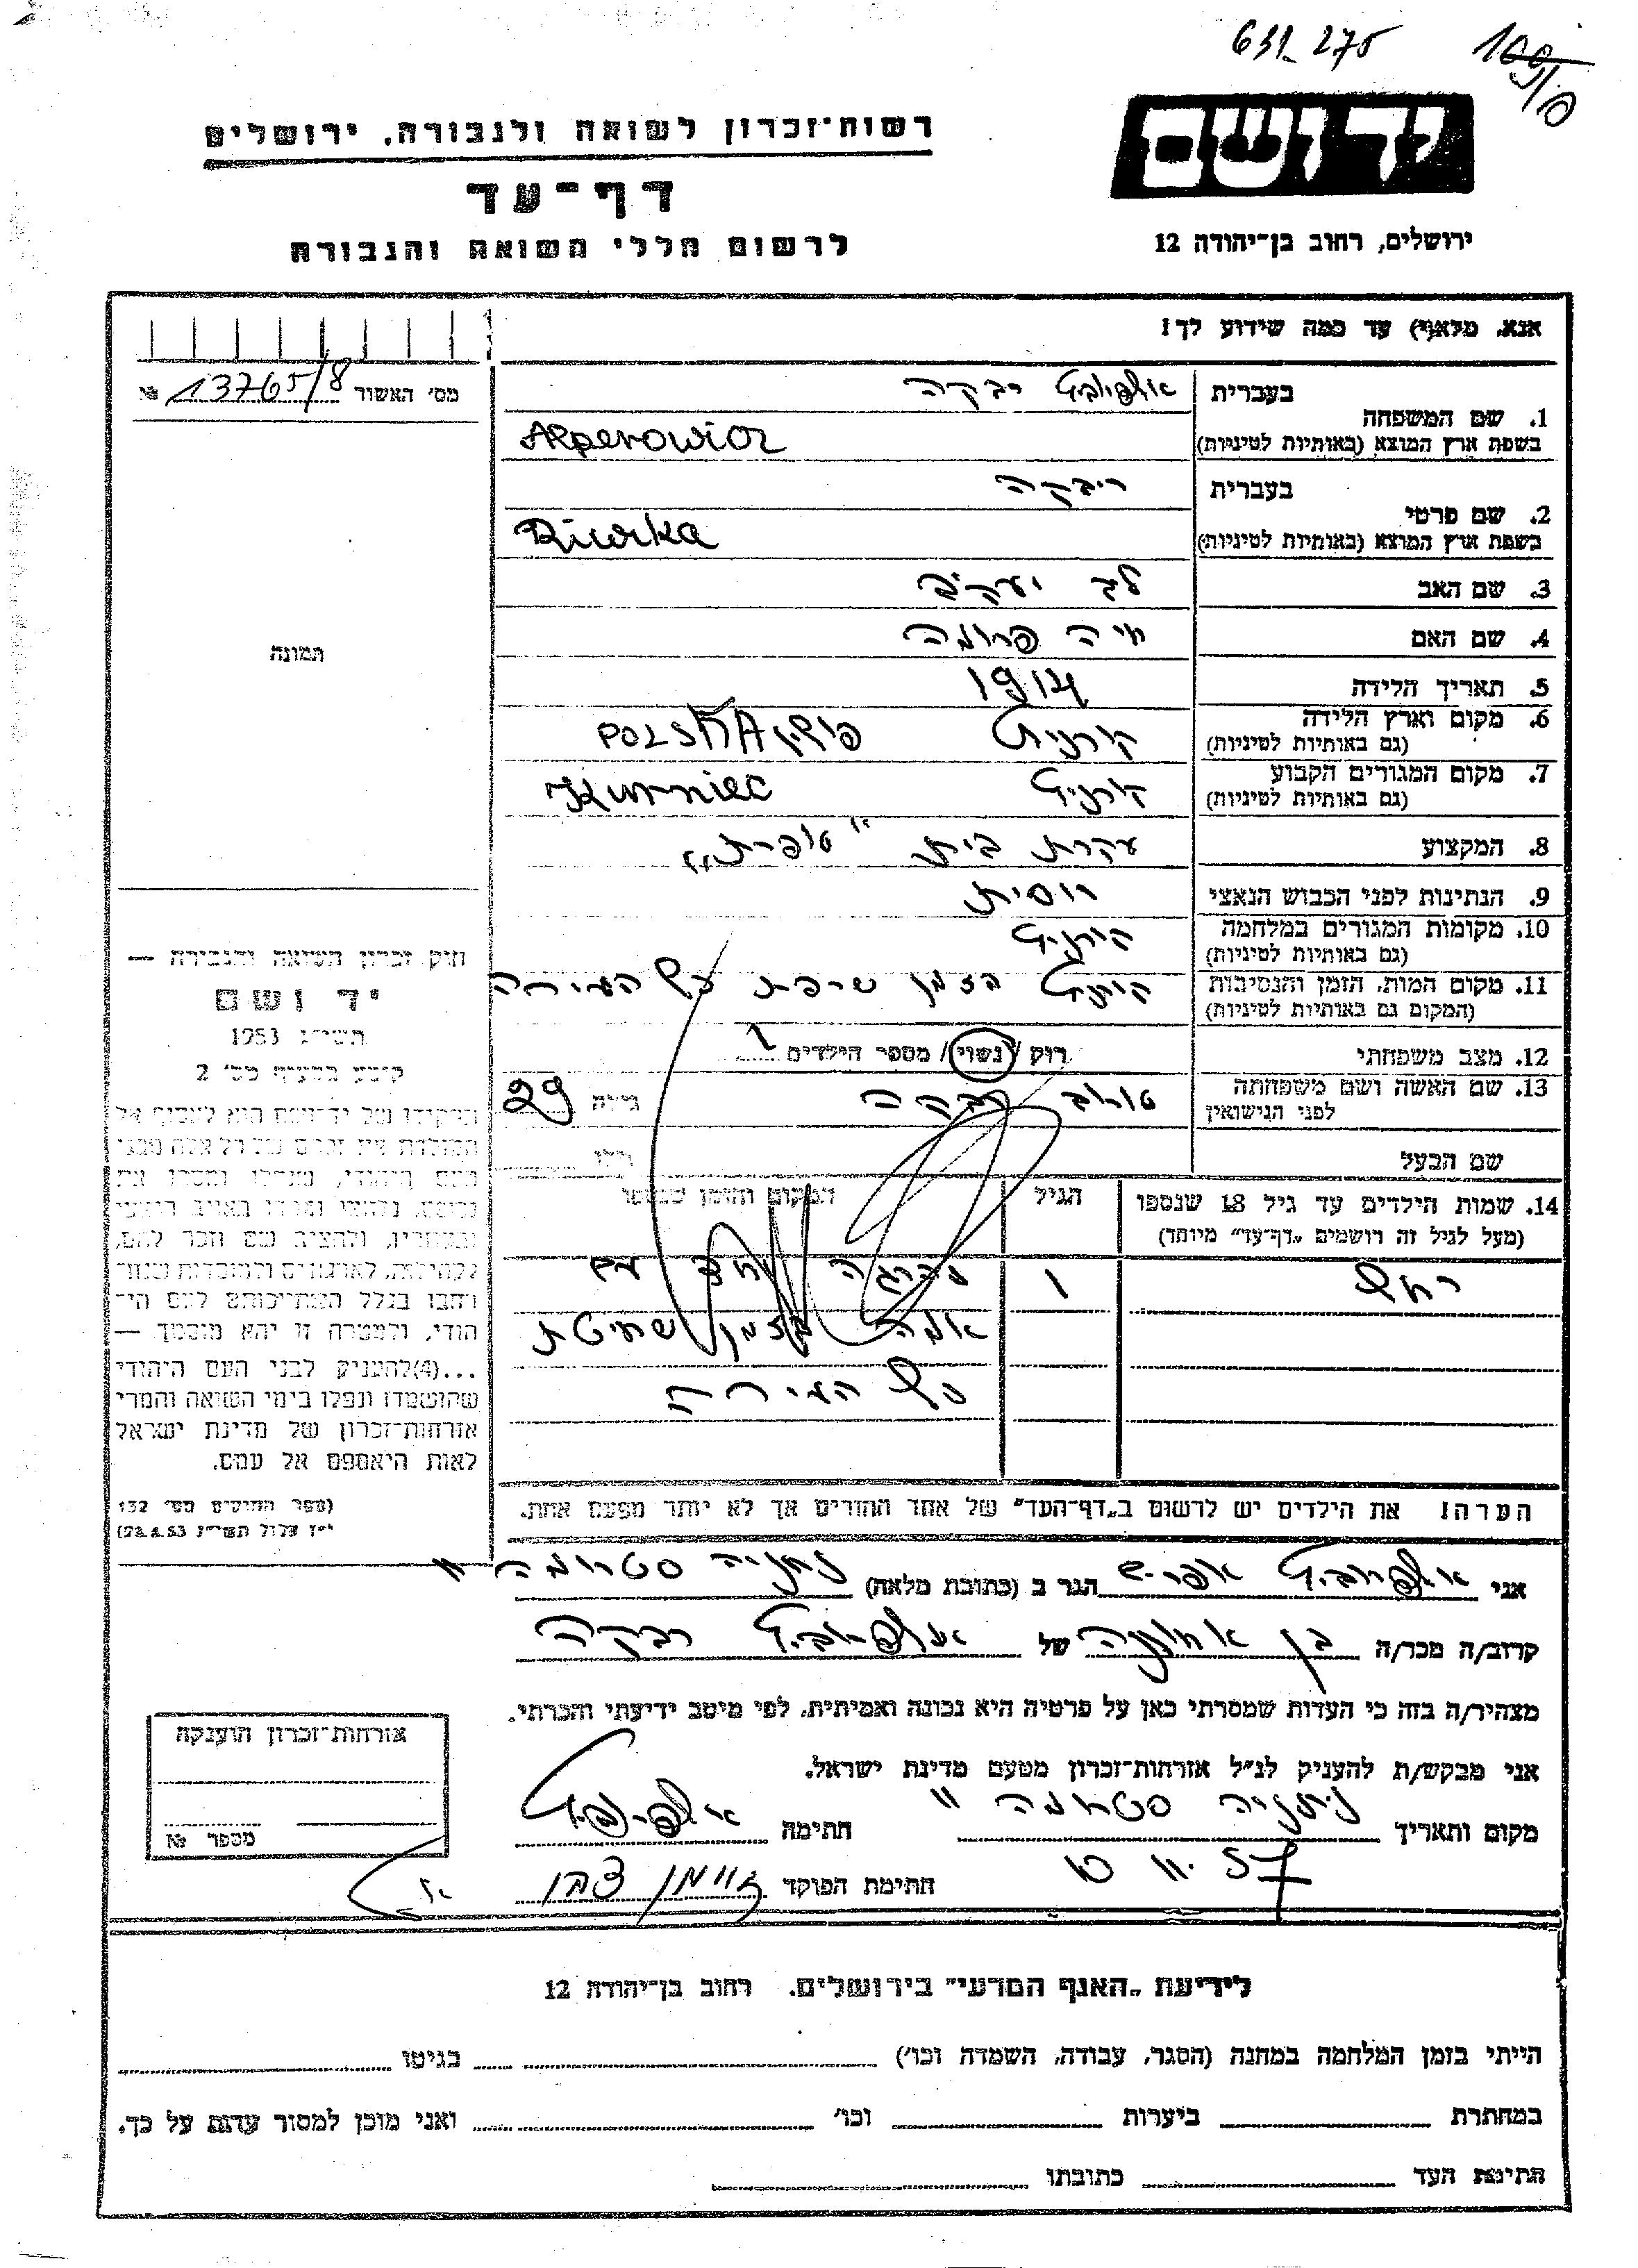 631-275
100/10
יד ושם
רשות-זכרון לשואה ולגבורה, ירושלים
דף-עד
לרשום חללי השואה והגבורה
ירושלים, רחוב בן-יהודה 12
אנא, מלא(י) עד כמה שידוע לך!
מס' האשוד № 13765/8
תמונה
1. שם המשפחה
בעברית אלפרוביץ רבקה
בשפת ארץ המוצא (באותיות לטיניות) Alperowicz
2. שם פרטי
בעברית ריבקה
בשפת ארץ המוצא (באותיות לטיניות) Riwka
3. שם האב לב יעקב
4. שם האם חיה פרומה
5. תאריך הלידה 1914
6. מקום וארץ הלידה קורניץ פולין POLSKA
(גם באותיות לטיניות)
7. מקום המגורים הקבוע קורניץ Kurniec
(גם באותיות לטיניות)
8. המקצוע עקרת בית "תופרת"
9. הנתינות לפני הכבוש הנאצי רוסית
10. מקומות המגורים במלחמה קורניץ
(גם באותיות לטיניות)
11. מקום המות, הזמן והנסיבות קורניץ בזמן שריפת כל העיירה
(המקום גם באותיות לטיניות)
12. מצב משפחתי רוק / נשוי / מספר הילדים 1
13. שם האשה ושם משפחתה רבקה גילה 29
לפני הנישואין
שם הבעל גילו
14. שמות הילדים עד גיל 18 שנספו הגיל המקום והזמן שנספו
(מעל לגיל זה רושמים "דף-עד" מיוחד)
רחל 1 נהרגה יחד עם
אמה בזמן שחיטת
כל העיירה
חוק זכרון השואה והגבורה —
יד ושם
תשי"ג 1953
קובע בסעיף מס' 2
תפקידו של יד-ושם הוא לאסוף אל
המולדת את זכרם של כל אלה מבני
העם היהודי, שנפלו ומסרו את
נפשם, נלחמו ומרדו באויב הנאצי
ובעוזריו, ולהציב שם וזכר להם,
לקהילות, לארגונים ולמוסדות שנח-
רבו בגלל השתייכותם לעם הי-
הודי, ולמטרה זו יהא מוסמך —
...(4)להעניק לבני העם היהודי
שהושמדו ונפלו בימי השואה והמרי
אזרחות-זכרון של מדינת ישראל
לאות היאספם אל עמם.
(ספר החוקים מס' 132
י"ז אלול תשי"ג 28.8.53)
הערה! את הילדים יש לרשום ב"דף-העד" של אחד ההורים אך לא יותר מפעם אחת.
אני אלפרוביץ אפרים הגר ב (כתובת מלאה) נתניה סטרומה 11
קרוב/ה מכר/ה בן אחותה של אלפרוביץ רבקה
מצהיר/ה בזה כי העדות שמסרתי כאן על פרטיה היא נכונה ואמיתית, לפי מיטב ידיעתי והכרתי.
אני מבקש/ת להעניק לנ"ל אזרחות-זכרון מטעם מדינת ישראל.
מקום ותאריך נתניה סטרומה 11 חתימה אלפרוביץ
10 11. 57 חתימת הפוקד
אזרחות-זכרון הוענקה
מספר №
לידיעת "האגף המדעי" בירושלים. רחוב בן-יהודה 12
הייתי בזמן המלחמה במחנה (הסגר, עבודה, השמדה וכו') בגיטו
במחתרת ביערות וכו' ואני מוכן למסור עדות על כך.
חתימת העד כתובתו